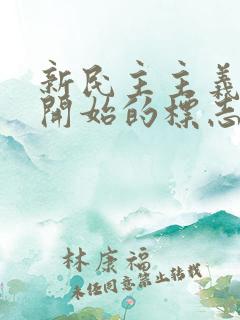 新民主主義
開始的標志
林康福
未经同意禁止转载